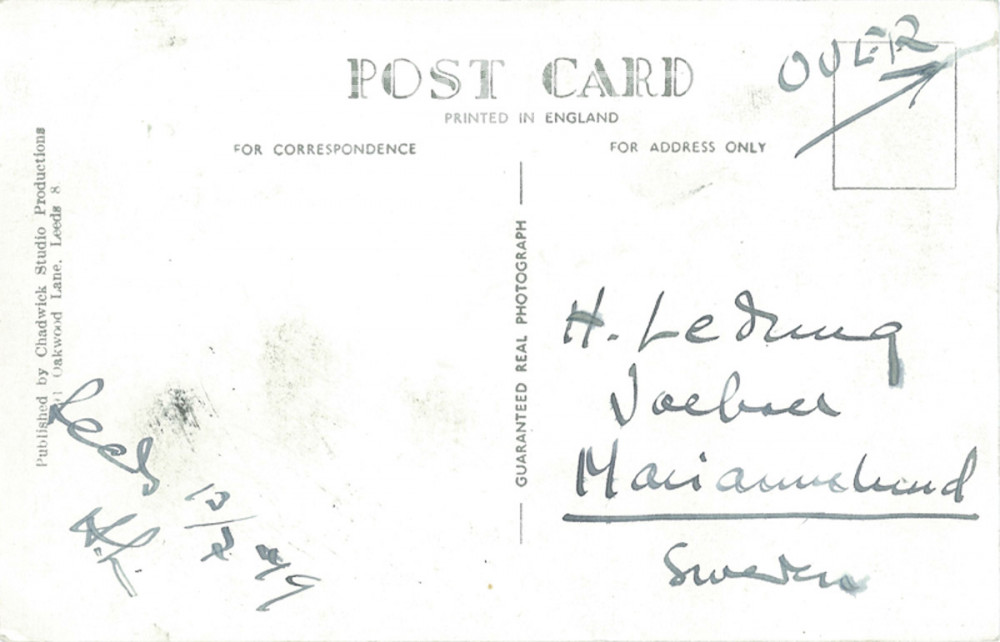 OVER
POST CARD
PRINTED IN ENGLAND
FOR CORRESPONDENCE
FOR ADDRESS ONLY
Published by Chadwick Studio Productions
Oakwood Lane, Leeds 8.
GUARANTEED REAL PHOTOGRAPH
H. Ledung
Mariannelund
Sweden
Leeds